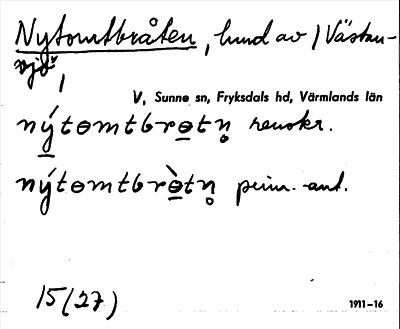 Nytomtbråten, hund av 1 Västan-
sjö,
V, Sunne sn, Fryksdals hd, Värmlands län
nýtomtbrotn̥ renskr.
nýtomtbròtn̥ prim. ant.
15(27)
1911–16